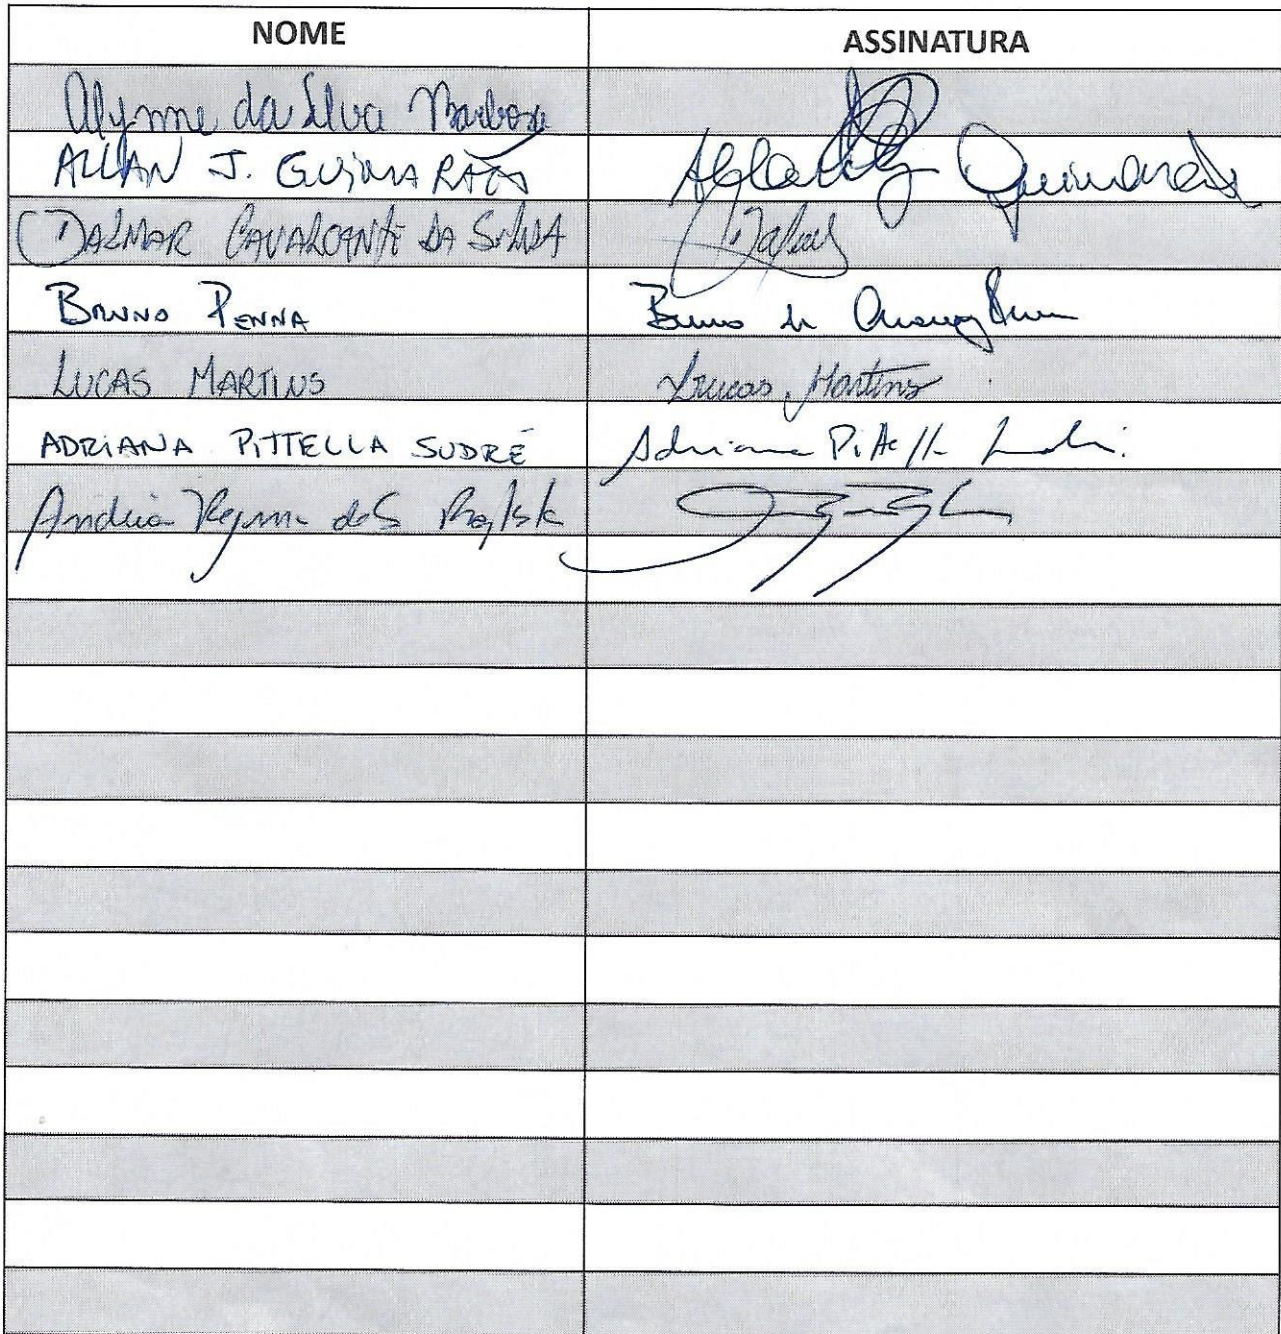 NOME ASSINATURA
Alynne da Silva Barbosa
ALLAN J. GUIMARÃES Guimarães
DALMAR CAVALCANTE DA SILVA
BRUNO PENNA Bruno de
LUCAS MARTINS Lucas Martins
ADRIANA PITTELLA SUDRÉ Adriana Pittella
Andréa Regina de S. Baptista